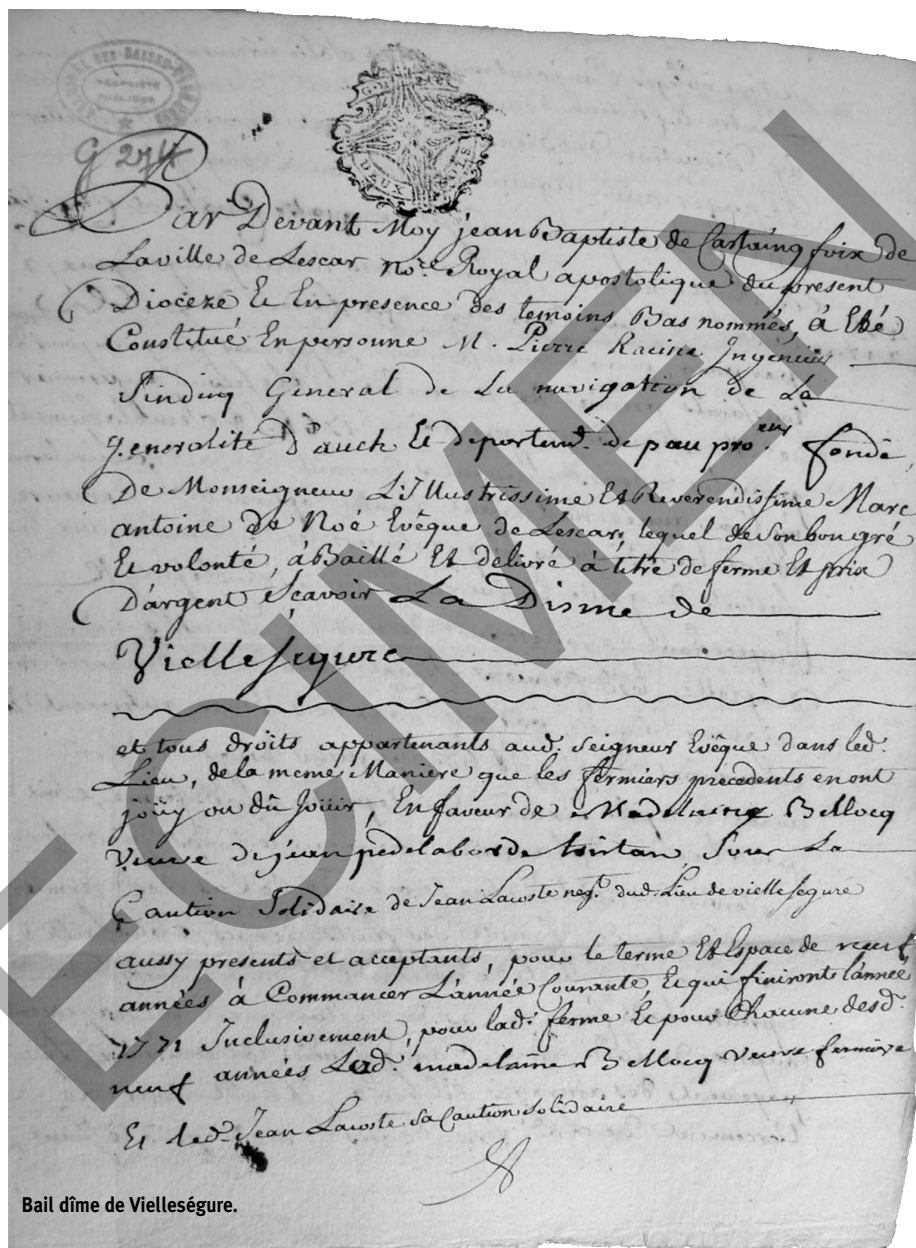 G 274
DEUX SOLS
Par Devant Moy jean Baptiste de Cartaing foix de
Laville de Lescar no.re Royal apostolique du present
Dioceze Et En presence des temoins Bas nommés, à Eté
Constitué En personne M. Pierre Racine Ingenieur
Sindiq General de La navigation de La
generalité D'auch Et departem.t de pau pro.eur fondé
De Monseigneur L'illustrissime Et Reverendissime Marc
antoine de Noé Evêque de Lescar, lequel de son bon gré
Et volonté, à Baillé Et delivré à titre de ferme Et prix
D'argent Sçavoir La Disme de
Viellesegure
et tous droits appartenants aud. Seigneur Evêque dans led.
Lieu, de la meme Maniere que les fermiers precedents en ont
joüy ou dû Joüir, En faveur de Madelaine Bellocq
Veuve de jean pedelaborde, Sous La
Caution Solidaire de Jean Lacoste neg.t dud. Lieu de viellesegure
aussy presents et acceptants, pour le terme Et Espace de neuf
années à Commancer L'année Courante, Et qui finiront l'année
1771 Inclusivement, pour lad. ferme Et pour Chacune desd.
neuf années Lad. madelaine Bellocq veuve fermiere
Et led. Jean Lacoste sa Caution Solidaire
Bail dîme de Vielleségure.
ECIMEN